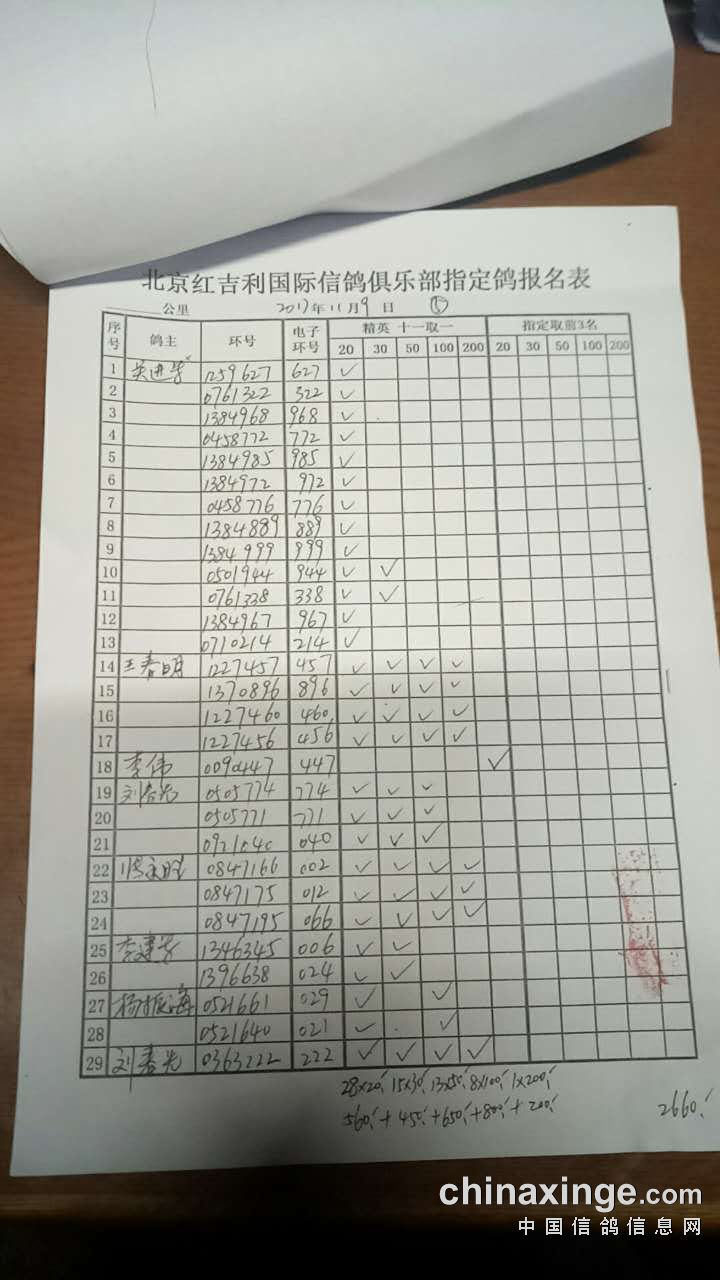 北京红吉利国际信鸽俱乐部指定鸽报名表
公里 2017年11月9日 ⑤
序号 鸽主 环号 电子环号 精英 十一取一 指定取前3名
20 30 50 100 200 20 30 50 100 200
1 吴进学 1259627 627 ✓
2 0761322 322 ✓
3 1384968 968 ✓
4 0458772 772 ✓
5 1384985 985 ✓
6 1384972 972 ✓
7 0458776 776 ✓
8 1384889 889 ✓
9 1384999 999 ✓
10 0501944 944 ✓ ✓
11 0761338 338 ✓ ✓
12 1384967 967 ✓
13 0710214 214 ✓
14 王春明 1227457 457 ✓ ✓ ✓ ✓
15 1370896 896 ✓ ✓ ✓ ✓
16 1227460 460 ✓ ✓ ✓ ✓
17 1227456 456 ✓ ✓ ✓ ✓
18 李伟 0090447 447 ✓
19 0505774 774 ✓ ✓ ✓
20 0505771 771 ✓ ✓ ✓
21 0921040 040 ✓ ✓ ✓
22 0847166 002 ✓ ✓ ✓ ✓
23 0847175 012 ✓ ✓ ✓ ✓
24 0847195 066 ✓ ✓ ✓ ✓
25 李建学 1346345 006 ✓ ✓
26 1396638 024 ✓ ✓
27 杨振海 0521661 029 ✓ ✓
28 0521640 021 ✓ ✓
29 刘春光 0363222 222 ✓ ✓ ✓ ✓
28×20 15×30 13×50 8×100 1×200
560 + 450 + 650 + 800 + 200 2660
chinaxinge.com
中国信鸽信息网